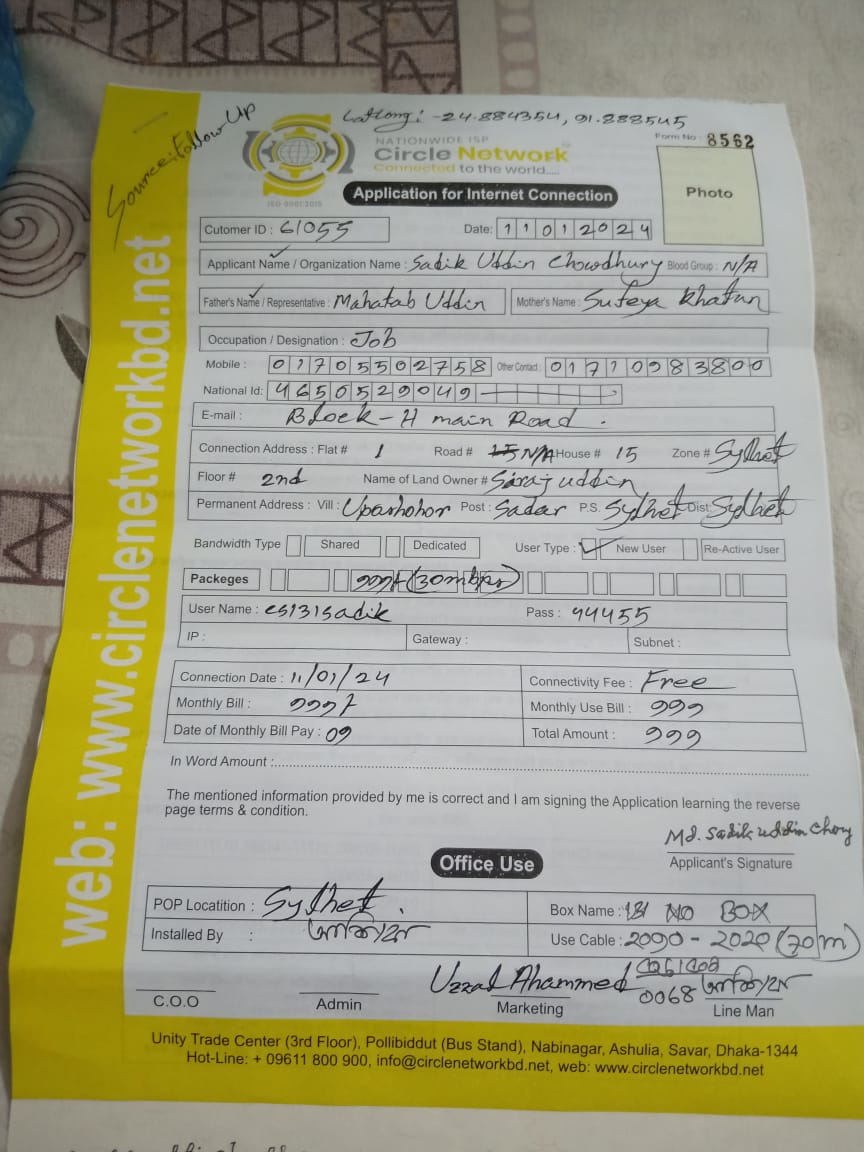 Source: Follow Up
Latlong: -24.884354, 91.888545
NATIONWIDE ISP
Form No : 8562
Circle Network
Connected to the world.....
ISO 9001:2015
Application for Internet Connection
Photo
Cutomer ID : 61055
Date: 11012024
Applicant Name / Organization Name : Sadik Uddin Chowdhury Blood Group : N/A
Father's Name / Representative : Mahatab Uddin Mother's Name : Sufeya Khatun
Occupation / Designation : Job
Mobile : 01705502758 Other Contact : 01710983800
National Id: 4650529049
E-mail : Block-H main Road .
Connection Address : Flat # 1 Road # N/A House # 15 Zone # Sylhet
Floor # 2nd Name of Land Owner # Siraj uddin
Permanent Address : Vill : Uparhohor Post : Sadar P.S. Sylhet Dist: Sylhet
Bandwidth Type Shared Dedicated User Type : New User Re-Active User
Packeges 999৳ (30mbps)
User Name : cs131sadik Pass : 44455
IP : Gateway : Subnet :
Connection Date : 11/01/24 Connectivity Fee : Free
Monthly Bill : 999৳ Monthly Use Bill : 999
Date of Monthly Bill Pay : 09 Total Amount : 999
In Word Amount :
The mentioned information provided by me is correct and I am signing the Application learning the reverse
page terms & condition.
Md. Sadik uddin Chory
Applicant's Signature
Office Use
POP Locatition : Sylhet . Box Name : 131 NO BOX
Installed By : Use Cable : 2090 - 2020 (70m)
Uzzal Ahammed
0068
C.O.O Admin Marketing Line Man
Unity Trade Center (3rd Floor), Pollibiddut (Bus Stand), Nabinagar, Ashulia, Savar, Dhaka-1344
Hot-Line: + 09611 800 900, info@circlenetworkbd.net, web: www.circlenetworkbd.net
web: www.circlenetworkbd.net